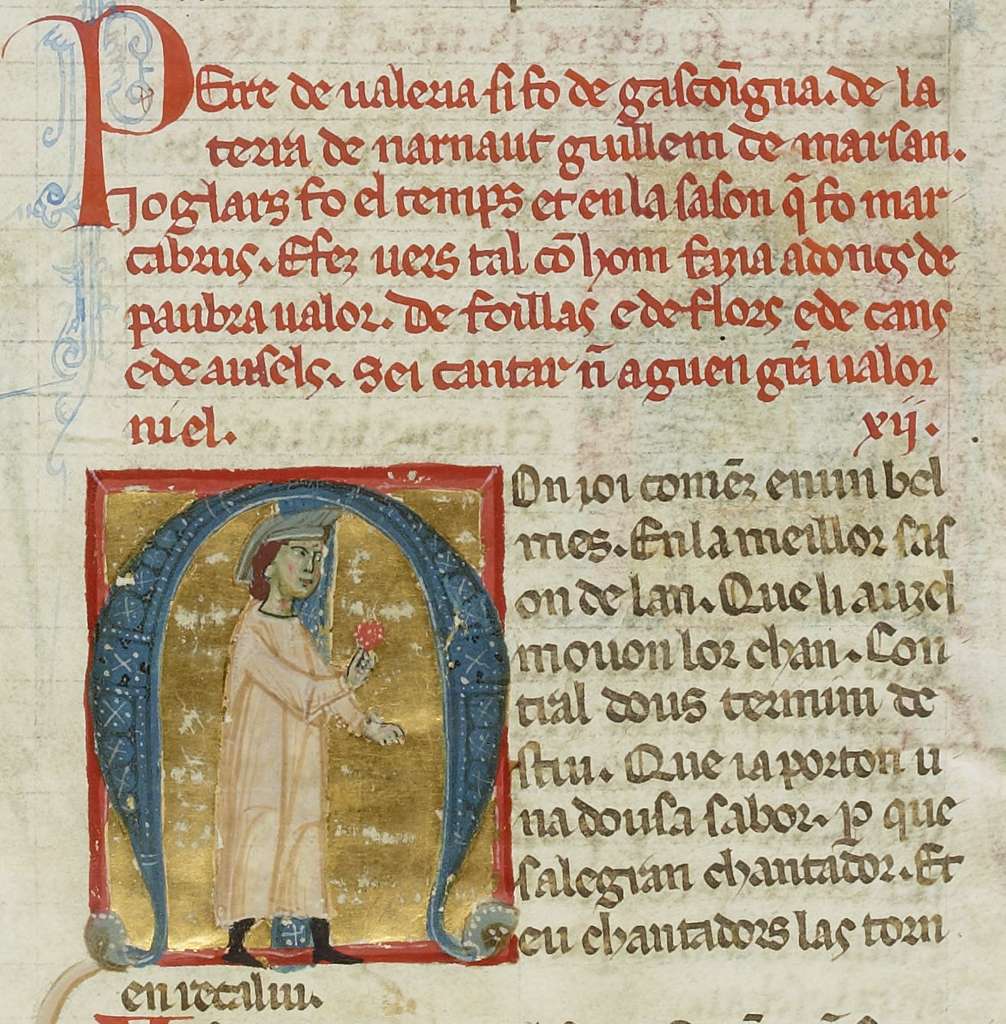 PEire de ualeria si fo de gascoīgna. de la
terra de narnaut guillem de marsan.
Joglars fo el temps et en la sason q̄ fo mar
cabrus. E fez uers tal cō hom fazia adoncs de
paubra ualor. De foillas e de flors e de cans
e de ausels. Sei cantar nō aguen grā ualor
ni el. xij.
On ioi comēz en un bel
mes. En la meillor sas
on de lan. Que li auzel
mouon lor chan. Con
tral dous termini de
stiu. Que ia porton u
na dousa sabor. ꝑ que
salegran chantador. Et
eu chantadors las torn
en recaliu.